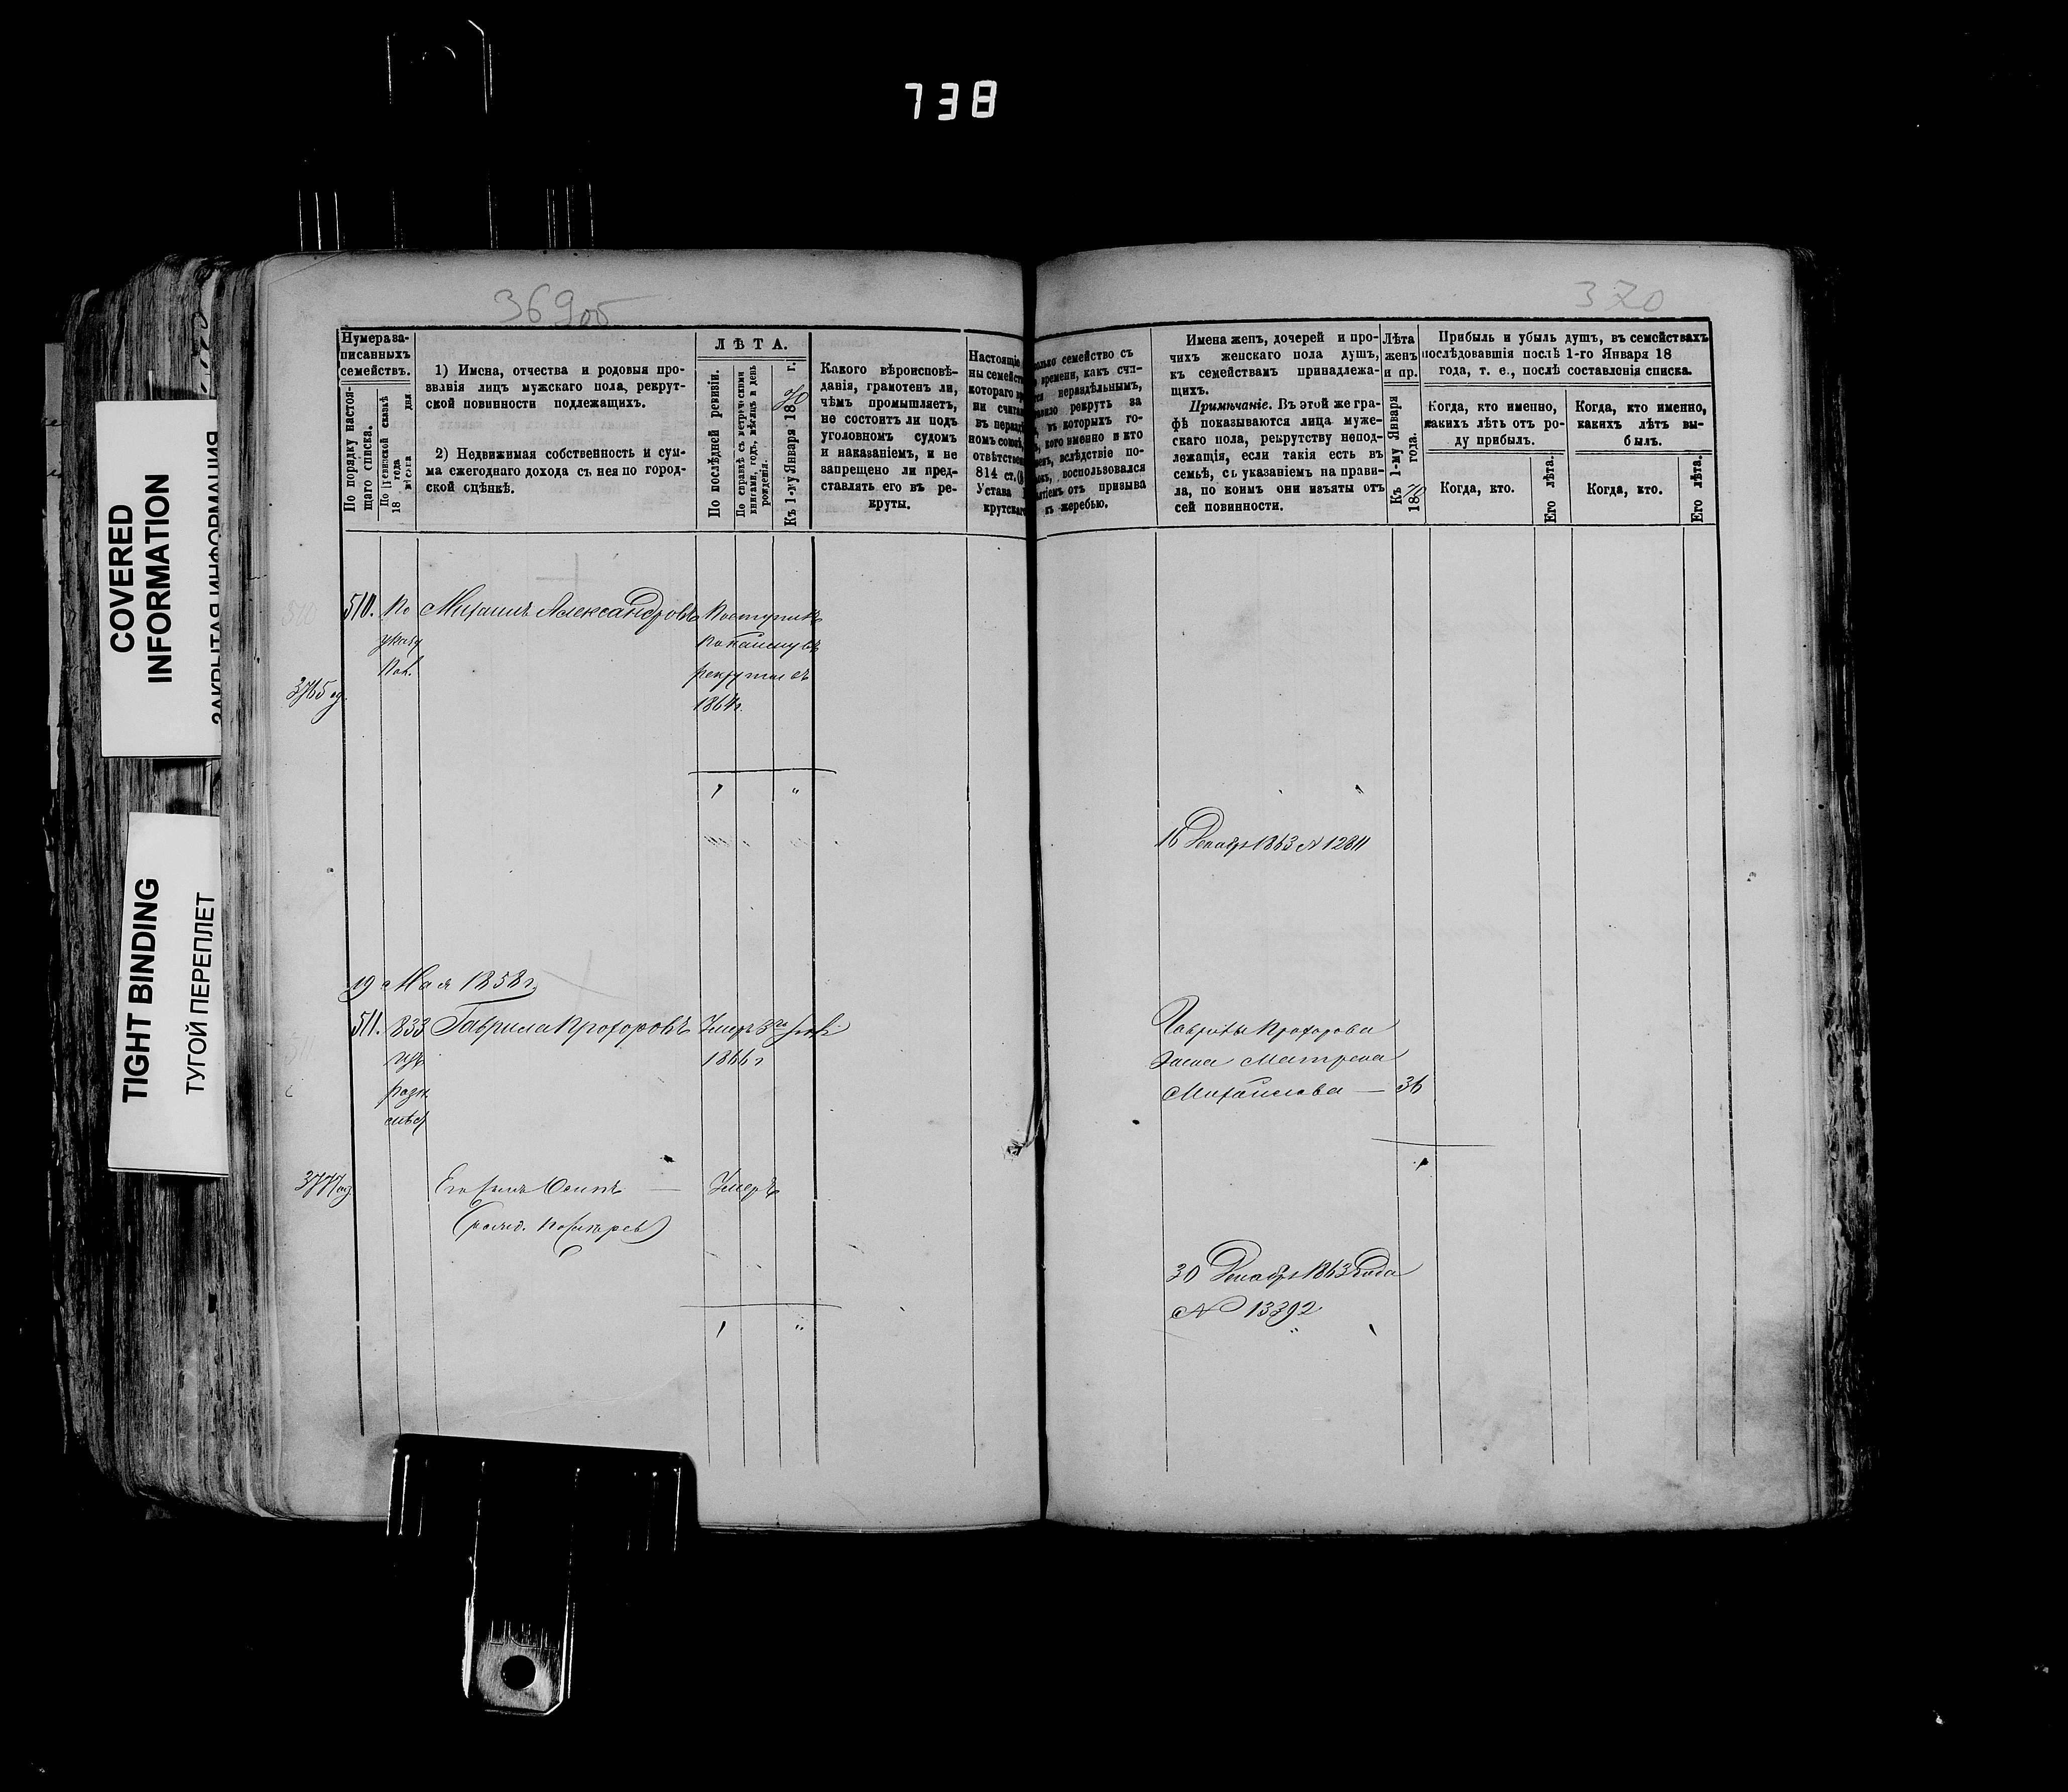 738
COVERED
INFORMATION
ЗАКРЫТАЯ ИНФОРМАЦИЯ
TIGHT BINDING
ТУГОЙ ПЕРЕПЛЕТ
369об
Нумера за-
писанныхъ
семействъ.
По порядку настоя-
щаго списка.
По ревизской сказкѣ
18 года
мѣсяца дня
1) Имена, отчества и родовыя про-
званія лицъ мужскаго пола, рекрут-
ской повинности подлежащихъ.
2) Недвижимая собственность и сум-
ма ежегоднаго дохода съ нея по город-
ской оцѣнкѣ.
ЛѢТА.
По послѣдней ревизіи.
По справкѣ съ метрическими
книгами, годъ, мѣсяцъ и день
рожденія.
Къ 1-му Января 1870 г.
Какого вѣроисповѣ-
данія, грамотенъ ли,
чѣмъ промышляетъ,
не состоитъ ли подъ
уголовномъ судомъ
и наказаніемъ, и не
запрещено ли пред-
ставлять его въ ре-
круты.
Настоящіе
ны семейст
котораго вр
ни счита
въ нераз
номъ союз
отвѣтствен
814 ст.
Устава
крутскаг
510. По Михаилъ Александровъ Поступилъ
указу по найму въ
Пал. рекруты въ
3765 1864г.
19 Мая 1858г.
511. 833 Гаврила Прохоровъ Умеръ
1866г
3777
Его сынъ Осипъ — Умеръ
370
семейство съ
времени, какъ счи-
нераздѣльнымъ,
рекрутъ за
въ которыхъ го-
кого именно и кто
вслѣдствіе по-
воспользовался
отъ призыва
къ жеребью.
Имена женъ, дочерей и про-
чихъ женскаго пола душъ,
къ семействамъ принадлежа-
щихъ.
Примѣчаніе. Въ этой же гра-
фѣ показываются лица муже-
скаго пола, рекрутству непод-
лежащія, если такія есть въ
семьѣ, съ указаніемъ на прави-
ла, по коимъ они изъяты отъ
сей повинности.
Лѣта
женъ
и пр.
Къ 1-му Января
1870 года.
Прибыль и убыль душъ, въ семействахъ
послѣдовавшія послѣ 1-го Января 18
года, т. е., послѣ составленія списка.
Когда, кто именно,
какихъ лѣтъ отъ ро-
ду прибылъ.
Когда, кто.
Его лѣта.
Когда, кто именно,
какихъ лѣтъ вы-
былъ.
Когда, кто.
Его лѣта.
16 Декабря 1863 № 12811
Гаврилы Прохорова
жена Матрена
Михайлова — 36
30 Декабря 1863 года
№ 13392